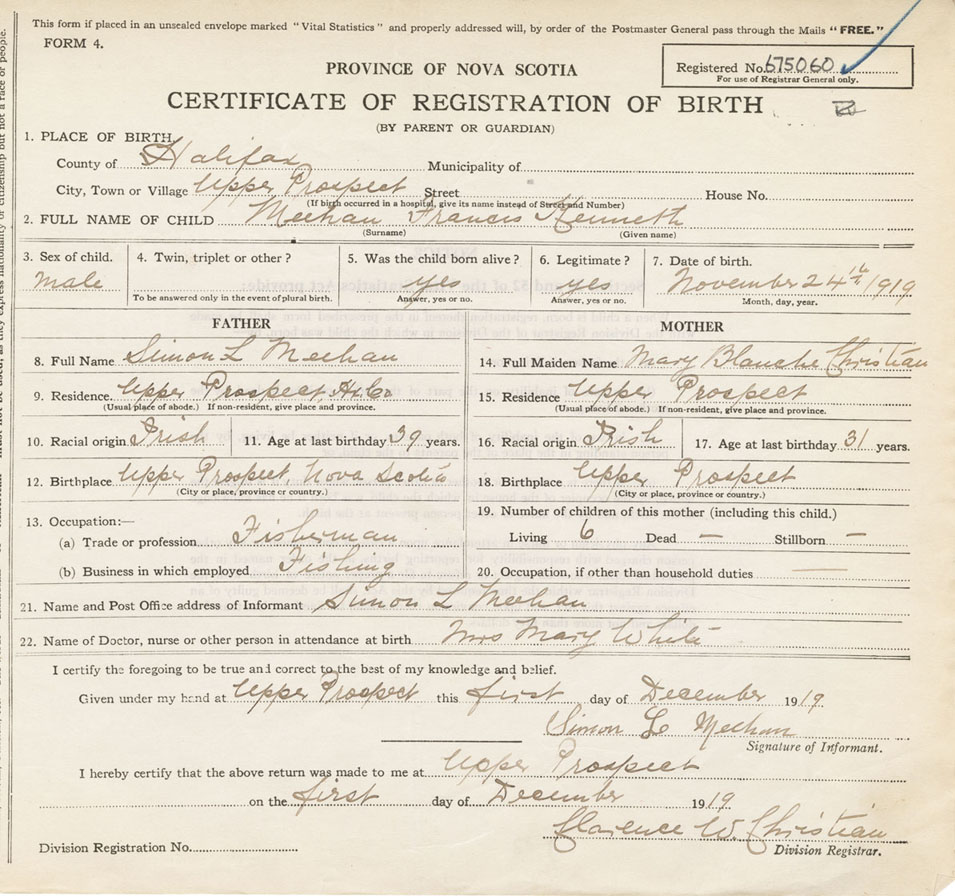 This form if placed in an unsealed envelope marked "Vital Statistics" and properly addressed will, by order of the Postmaster General pass through the Mails "FREE."
FORM 4.
Registered No. 675060
For use of Registrar General only.
PROVINCE OF NOVA SCOTIA
CERTIFICATE OF REGISTRATION OF BIRTH
(BY PARENT OR GUARDIAN)
1. PLACE OF BIRTH
County of Halifax Municipality of
City, Town or Village Upper Prospect Street House No.
(If birth occurred in a hospital, give its name instead of Street and Number)
2. FULL NAME OF CHILD Meehan Francis Kenneth
(Surname) (Given name)
3. Sex of child. 4. Twin, triplet or other? 5. Was the child born alive? 6. Legitimate? 7. Date of birth.
male yes yes November 24th 1919
To be answered only in the event of plural birth. Answer, yes or no. Answer, yes or no. Month, day, year.
FATHER MOTHER
8. Full Name Simon L Meehan 14. Full Maiden Name Mary Blanche Christian
9. Residence. Upper Prospect Hx Co 15. Residence Upper Prospect
(Usual place of abode.) If non-resident, give place and province. (Usual place of abode.) If non-resident, give place and province.
10. Racial origin Irish 11. Age at last birthday 39 years. 16. Racial origin Irish 17. Age at last birthday 31 years.
12. Birthplace Upper Prospect, Nova Scotia 18. Birthplace Upper Prospect
(City or place, province or country.) (City or place, province or country.)
13. Occupation:— 19. Number of children of this mother (including this child.)
(a) Trade or profession Fisherman Living 6 Dead — Stillborn —
(b) Business in which employed Fishing 20. Occupation, if other than household duties —
21. Name and Post Office address of Informant Simon L Meehan
22. Name of Doctor, nurse or other person in attendance at birth Mrs Mary White
I certify the foregoing to be true and correct to the best of my knowledge and belief.
Given under my hand at Upper Prospect this first day of December 1919
Simon L Meehan
Signature of Informant.
I hereby certify that the above return was made to me at Upper Prospect
on the first day of December 1919
Clarence W. Christian
Division Registration No. Division Registrar.